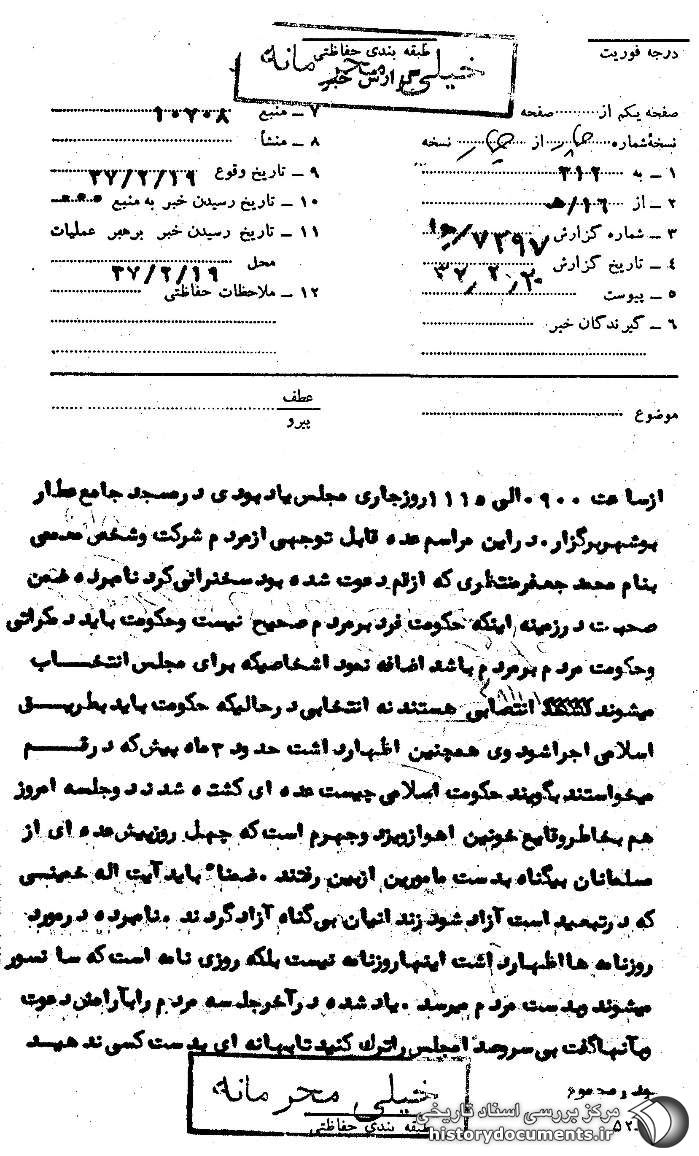 درجه فوریت
طبقه بندی حفاظتی
خیلی محرمانه
گزارش خبر
صفحه یکم از صفحه
نسخهٔ شماره چهار از چهار نسخه
۱ ــ به ۳۱۲
۲ ــ از ۱۶/ﻫ
۳ ــ شماره گزارش ۷۳۹۷/
۴ ــ تاریخ گزارش
۵ ــ پیوست
۶ ــ گیرندگان خبر
۷ ــ منبع ۱۰۷۰۸
۸ ــ منشأ
۹ ــ تاریخ وقوع ۳۷/۲/۱۹
۱۰ ــ تاریخ رسیدن خبر به منبع
۱۱ ــ تاریخ رسیدن خبر برهبر عملیات
محل ۳۷/۲/۱۹
۱۲ ــ ملاحظات حفاظتی
موضوع
عطف
پیرو
ازساعت ۰۹۰۰ الی ۱۱۱۵ روزجاری مجلس یادبودی درمسجد جامع عطار
بوشهربرگزار.دراین مراسم عده قابل توجهی ازمردم شرکت وشخص معممی
بنام محمد جعفرمنتظری که ازقم دعوت شده بود سخنرانی کرد نامبرده ضمن
صحبت درزمینه اینکه حکومت فرد برمردم صحیح نیست وحکومت باید دمکراتی
وحکومت مردم برمردم باشد اضافه نمود اشخاصیکه برای مجلس انتخاب
میشوند انتصابی هستند نه انتخابی درحالیکه حکومت باید بطریق
اسلامی اجراشود وی همچنین اظهارداشت حدود ۳ماه پیش که درقم
میخواستند بگویند حکومت اسلامی چیست عده ای کشته شدند وجلسه امروز
هم بخاطروقایع خونین اهوازویزد وجهرم است که چهل روزپیش عده ای از
مسلمانان بیگناه بدست مامورین ازبین رفتند .ضمنا" باید آیت اله خمینی
که درتبعید است آزاد شود زندانیان بی گناه آزاد گردند .نامبرده درمورد
روزنامه هااظهارداشت اینهاروزنامه نیست بلکه روزی نامه است که سانسور
میشوند وبدست مردم میرسد .یادشده درآخرجلسه مردم رابآرامش دعوت
وبآنهاگفت بی سروصدامجلس راترك کنید تابهانه ای بدست کسی ندهید
خیلی محرمانه
طبقه بندی حفاظتی
مرکز بررسی اسناد تاریخی
historydocuments.ir